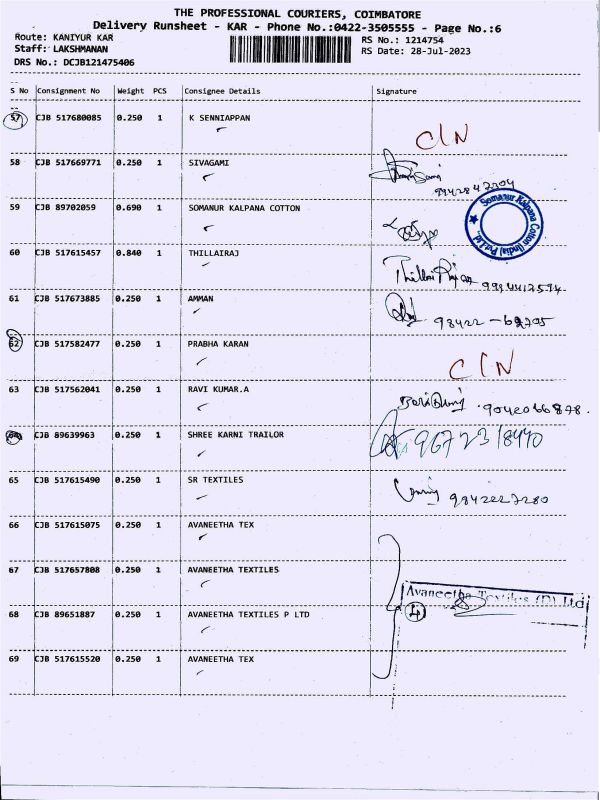 THE PROFESSIONAL COURIERS, COIMBATORE
Delivery Runsheet - KAR - Phone No.:0422-3505555 - Page No.:6
Route: KANIYUR KAR
RS No.: 1214754
Staff: LAKSHMANAN
RS Date: 28-Jul-2023
DRS No.: DCJB121475406
S No Consignment No Weight PCS Consignee Details Signature
57 CJB 517680085 0.250 1 K SENNIAPPAN C/N
58 CJB 517669771 0.250 1 SIVAGAMI
59 CJB 89702059 0.690 1 SOMANUR KALPANA COTTON
Somanur Kalpana Cotton (India) Pvt Ltd
60 CJB 517615457 0.840 1 THILLAIRAJ
61 CJB 517673885 0.250 1 AMMAN
62 CJB 517582477 0.250 1 PRABHA KARAN C/N
63 CJB 517562041 0.250 1 RAVI KUMAR.A
64 CJB 89639963 0.250 1 SHREE KARNI TRAILOR
65 CJB 517615490 0.250 1 SR TEXTILES 9842227280
66 CJB 517615075 0.250 1 AVANEETHA TEX
67 CJB 517657808 0.250 1 AVANEETHA TEXTILES
Avaneetha Textiles (P) Ltd
4
68 CJB 89651887 0.250 1 AVANEETHA TEXTILES P LTD
69 CJB 517615520 0.250 1 AVANEETHA TEX